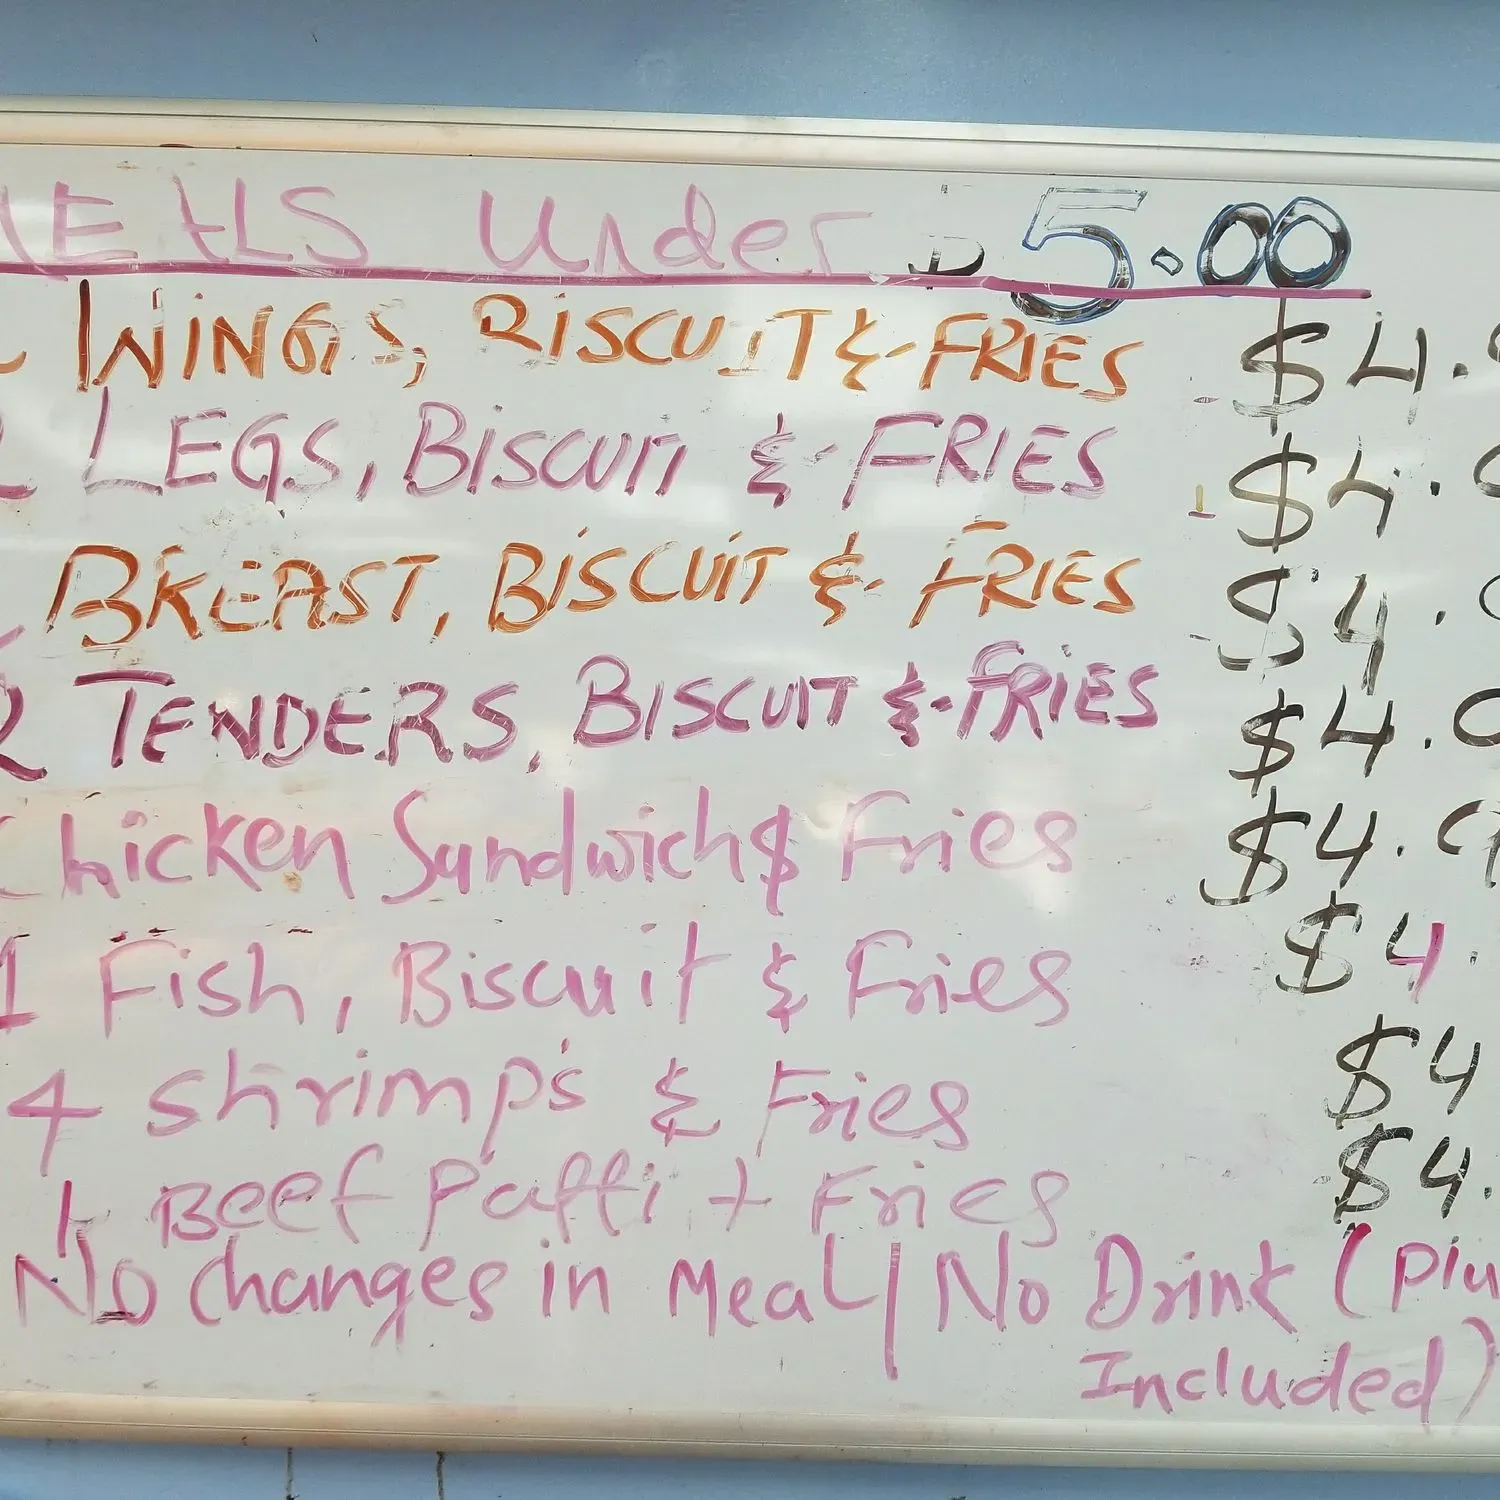 Under $5.00
WINGS, BISCUIT & FRIES $4.
2 LEGS, BISCUIT & FRIES $4.
BREAST, BISCUIT & FRIES $4.
2 TENDERS, BISCUIT & FRIES $4.
Chicken Sandwich & Fries $4.9
1 Fish, Biscuit & Fries $4.
4 Shrimp's & Fries $4
1 Beef Patti + Fries $4.
No Changes in Meal | No Drink (
Included)